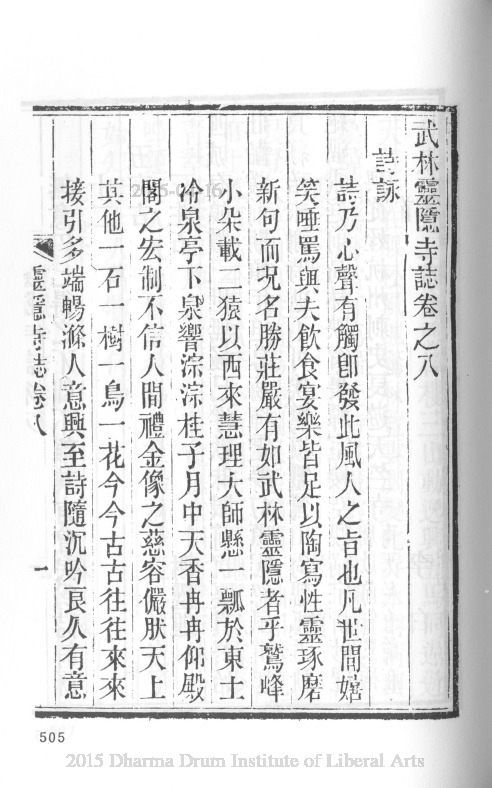 武林靈隱寺誌卷之八
詩詠
詩乃心聲有觸卽發此風人之旨也凡世間嬉
笑唾罵與夫飲食宴樂皆足以陶寫性靈琢磨
新句而况名勝莊嚴有如武林靈隱者乎鷲峰
小朵載二猿以西來慧理大師懸一瓢於東土
冷泉亭下泉響淙淙桂子月中天香冉冉仰殿
閣之宏制不信人間禮金像之慈容儼肰天上
其他一石一樹一鳥一花今今古古往往來來
接引多端暢滌人意興至詩隨沉吟良久有意
靈隱寺誌卷八
一
505
2015 Dharma Drum Institute of Liberal Arts